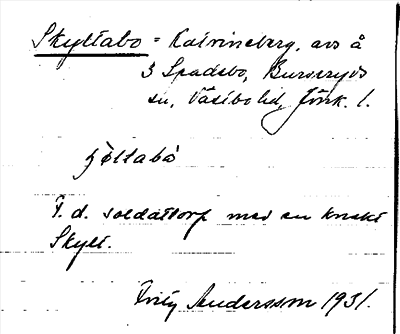 Skyttabo = Katrineberg, avs å
3 Spadebo, Burseryds
sn, Västbo hd, Jönk. l.
F. d. soldattorp med en knekt
Skytt.
Fritz Andersson 1931.